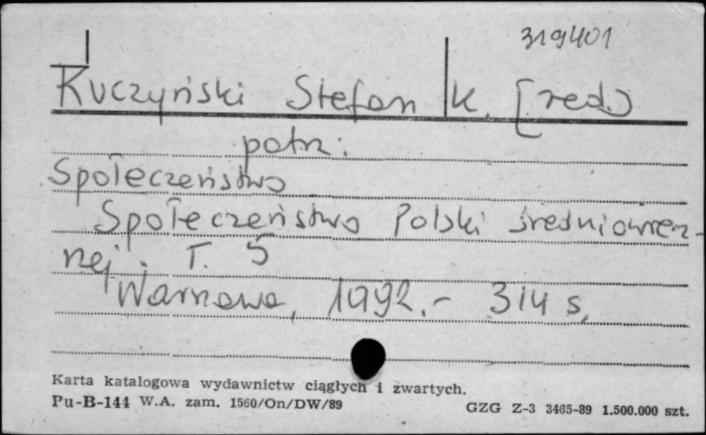 319401
Kuczyński Stefan K. [red.]
patrz:
Społeczeństwo
Społeczeństwo Polski średniowiecz-
nej. T. 5
Warszawa, 1992.- 314 s.
Karta katalogowa wydawnictw ciągłych i zwartych.
Pu-B-144 W.A. zam. 1560/On/DW/89 GZG Z-3 3465-89 1.500.000 szt.